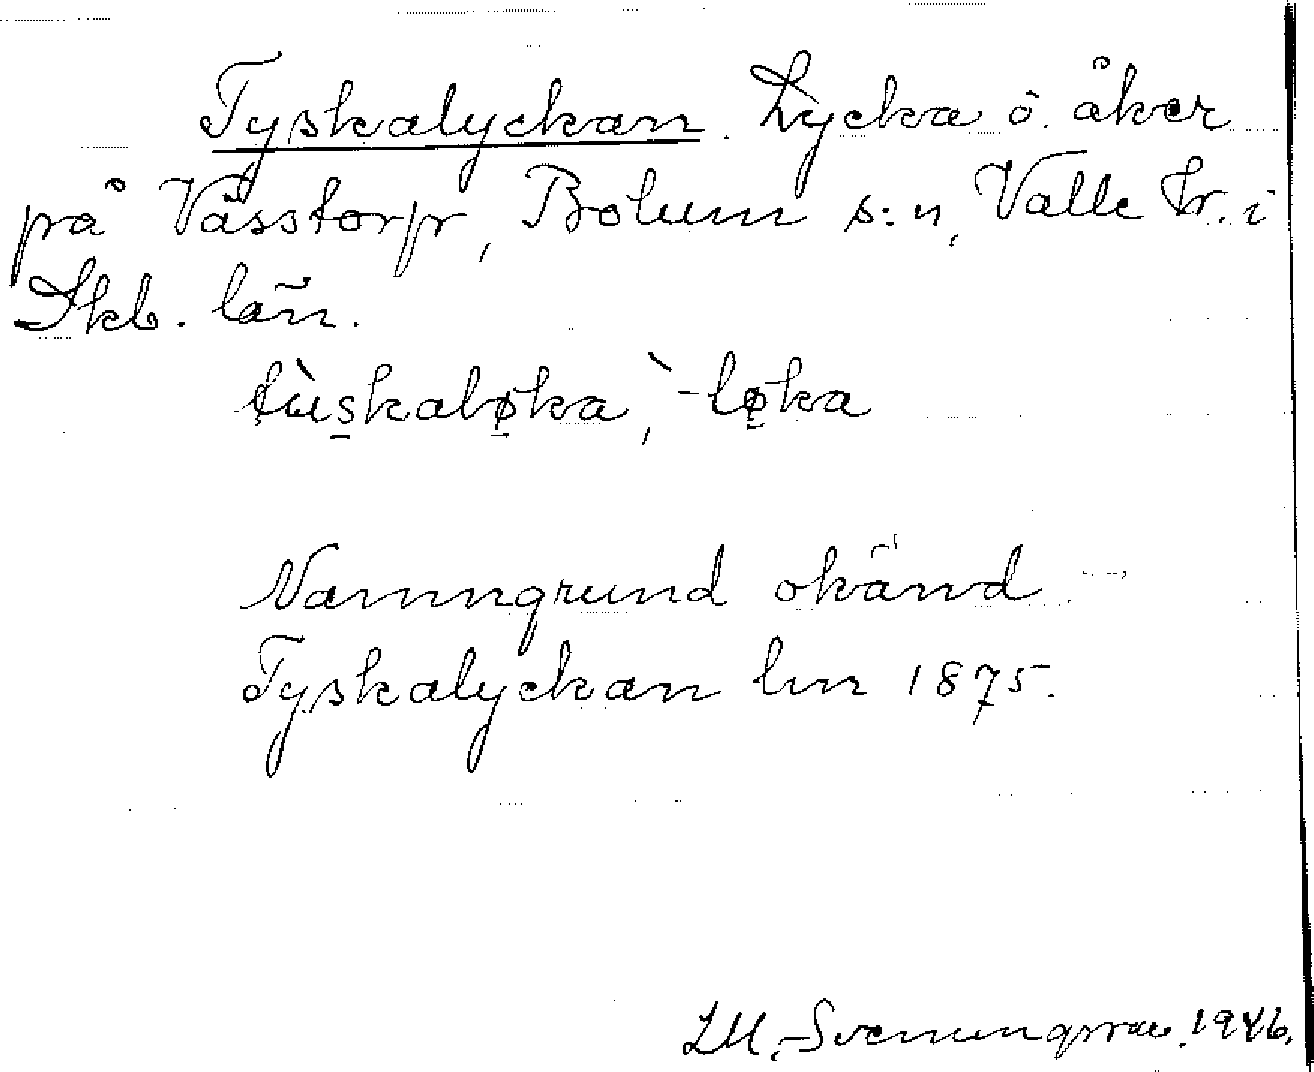 Tyskalyckan. Lycka o. åker
på Vässtorp, Bolum s:n, Valle hr. i
Skb. län.
tùskaløka, -løka
Namngrund okänd
Tyskalyckan lm 1875.
1946.